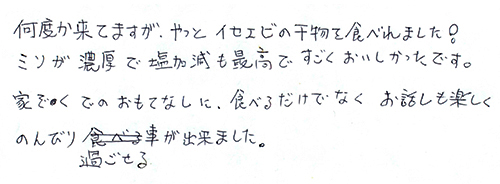 何度か来てますが、やっとイセエビの干物を食べれました!
ミソが濃厚で塩加減も最高ですごくおいしかったです。
家でのおもてなしに、食べるだけでなくお話しも楽しく
のんびり食べる事が出来ました。
過ごせる